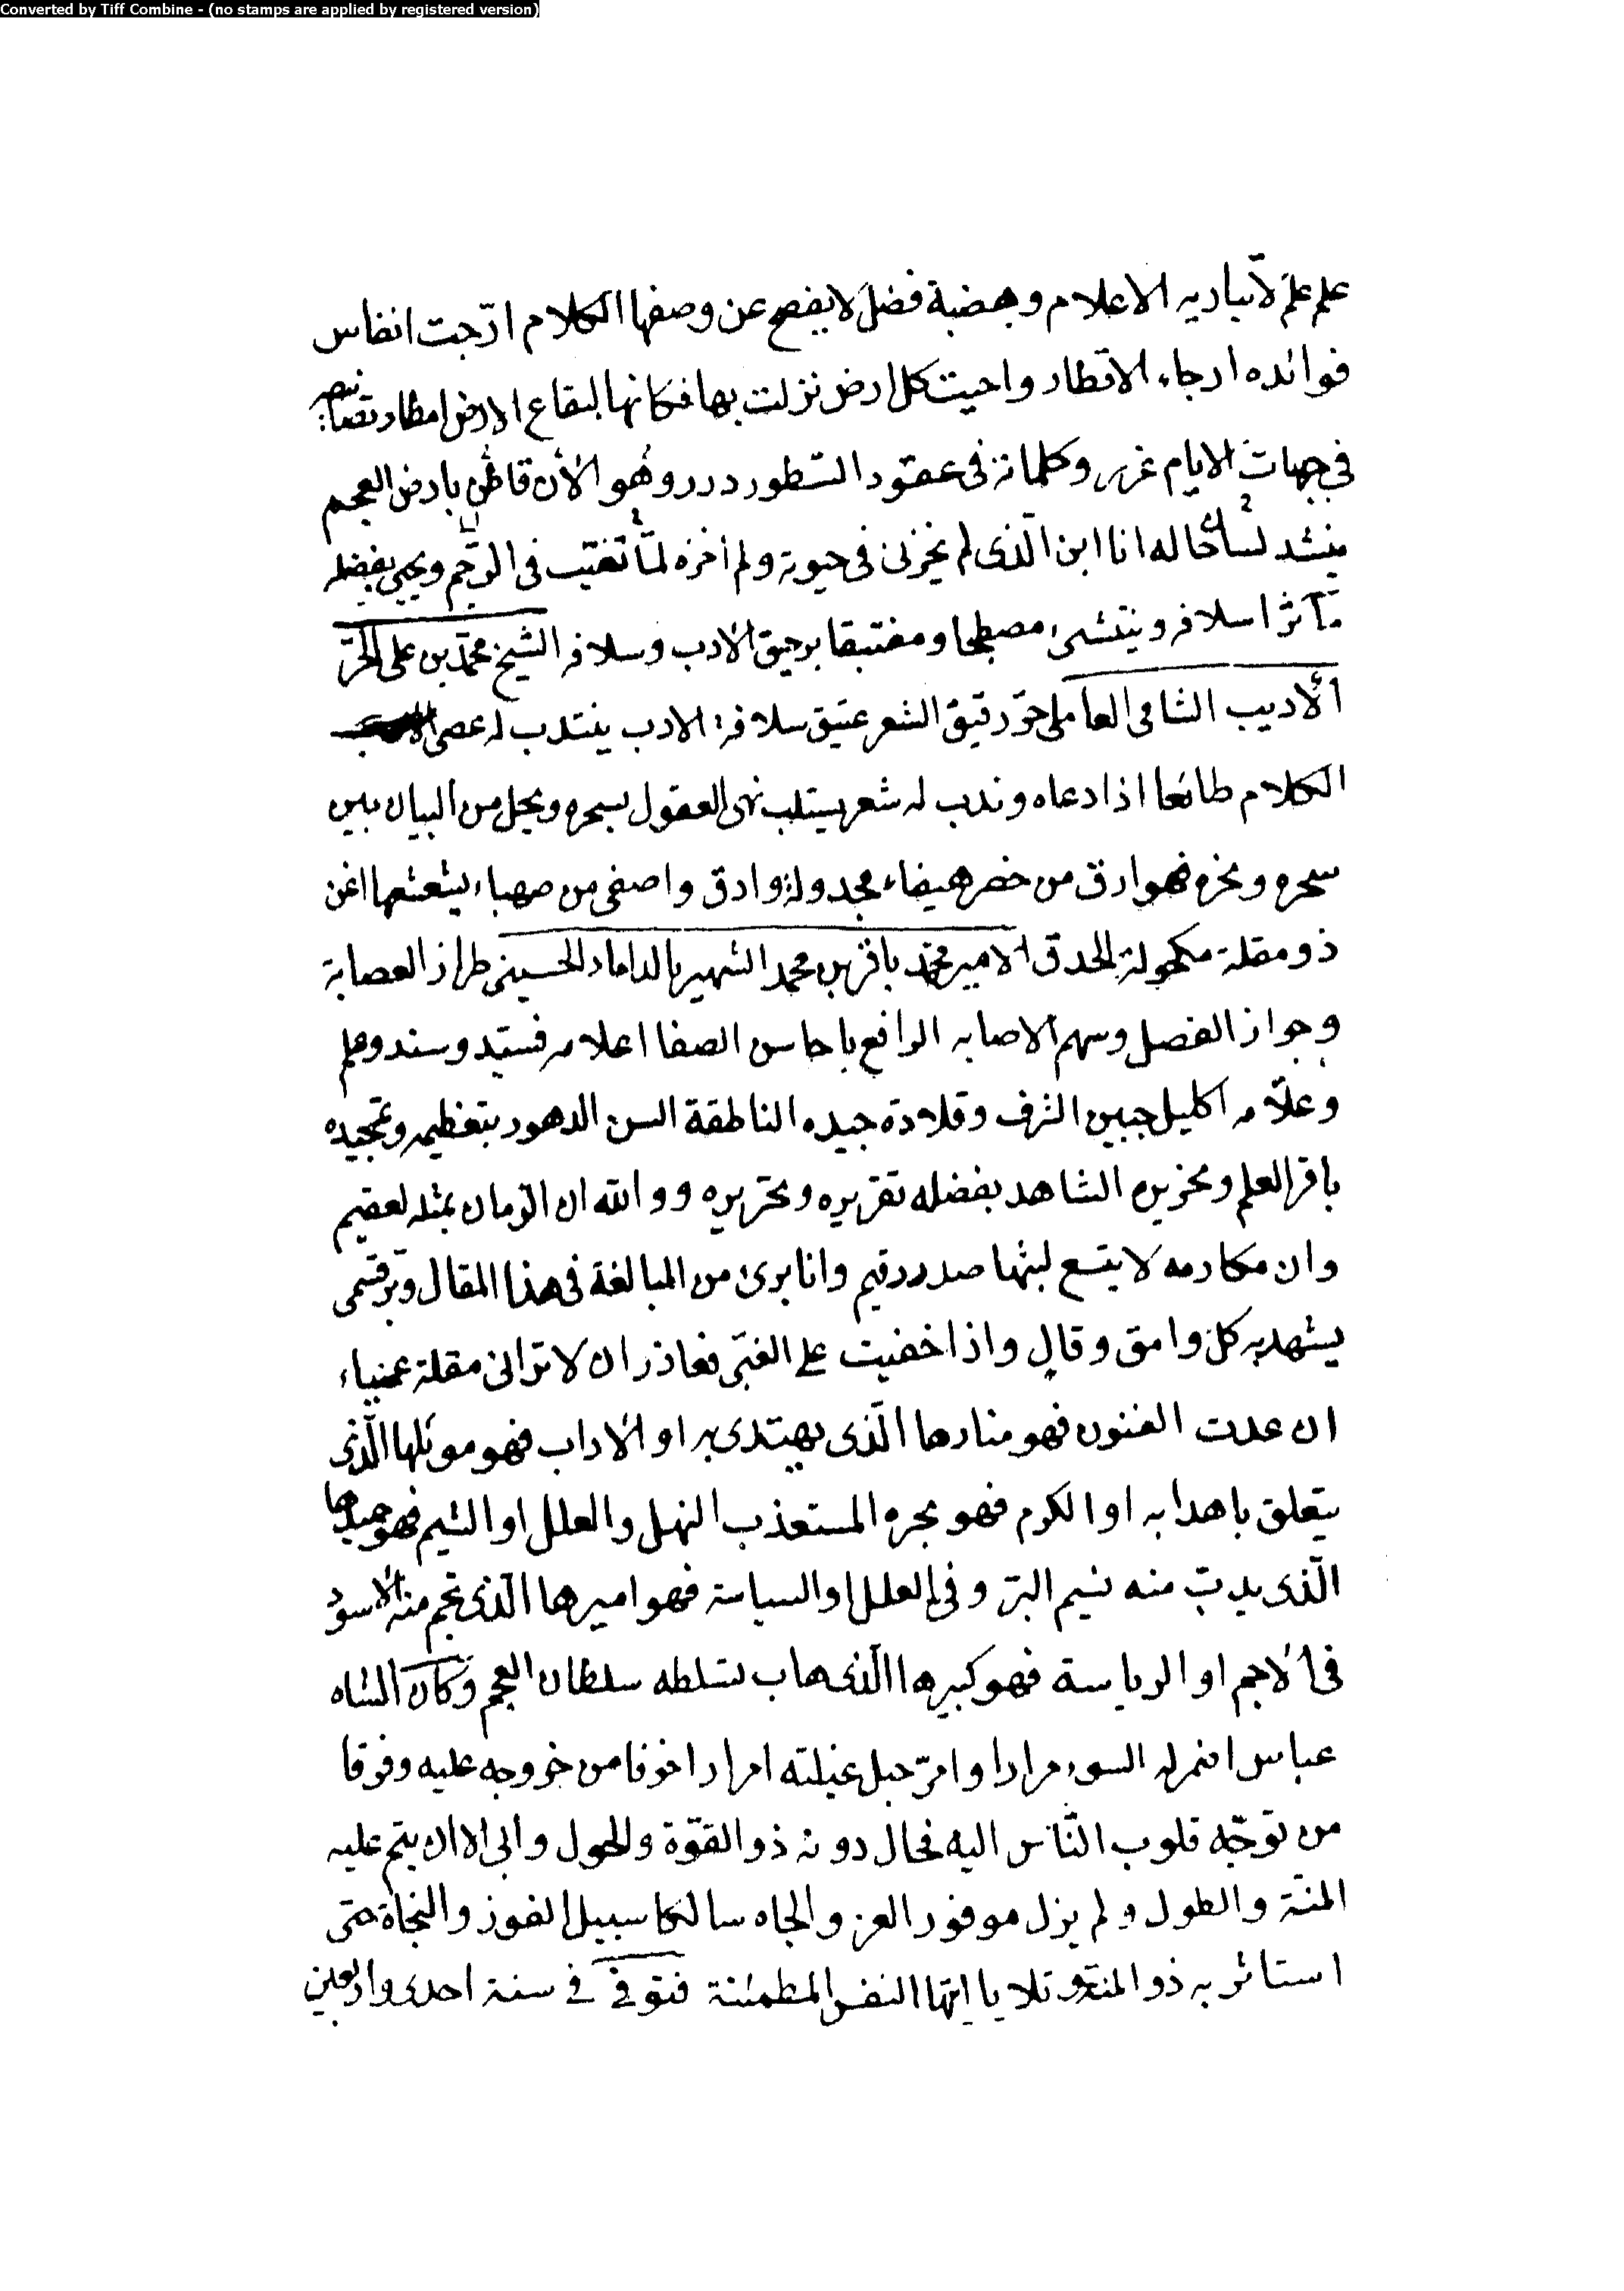 Converted by Tiff Combine - (no stamps are applied by registered version)
علم علم لا تباريه الاعلام وهضبة فضل لا يفصح عن وصفها الكلام ارّجت انفاس
فوائده ارجاء الاقطار واحيت كل ارض نزلت بها فكانها لبقاع الارض امطار تصانيفه
فى جبهات الايام غرر وكلماته فى عقود السّطور درر وهو الأن قاطن بارض العجم
ينشد لسان حاله انا ابن الّذى لم يخزنى فى حيوته ولم أخزه لمّا تغيّب فى الرّجم ويحيى بفضله
مآثر اسلافه وينتشى مصطبحا ومغتبقا برحيق الادب وسلافه الشيخ محمّد بن على الحرّ
الأديب الشامى العاملى حرّ رقيق الشعر عتيق سلافة الادب ينتدب له عصى
الكلام طائعا اذا دعاه وندب له شعر يستلب نهى العقول بسحره ويحل من البيان بين
سحره ونحره فهو ارق من خصر هيفاء مجدولة وادق واصفى من صهباء يشعشعها اغن
ذو مقلة مكحولة الحدق الامير محمّد باقر بن محمد الشهير بالداماد الحسينى طراز العصابة
وجواز الفضل وسهم الاصابه الرافع باحاسن الصفا اعلامه فسيّد وسند وعلم
وعلاّمه اكليل جبين الشرف وقلادة جيده الناطقة السن الدهور بتعظيمه وتمجيده
باقر العلم ونحريره الشاهد بفضله تقريره وتحريره ووالله ان الزمان بمثله لعقيم
وان مكارمه لا يتسع لبثها صدر رقيم وانا برئ من المبالغة فى هذا المقال وبرّ قسمى
يشهد به كل وامق وقالٍ واذا خفيت على الغبّى فعاذر ان لا ترانى مقلة عمياء
ان عدت الفنون فهو منارها الّذى يهتدى به او الاداب فهو موئلها الّذى
يتعلق باهدابه او الكرم فهو بحره المستعذب النهل والعلل او الشيم فهو حميدها
الّذى يدبّ منه نسيم البرّ وفى العلل او السياسة فهو اميرها الّذى تجم منه الاسود
فى الاجم او الرياسة فهو كبيرها الّذى هاب تسلطه سلطان العجم وكان الشاه
عباس اضمر له السوء مرارا وامرّ حبل غيلته امرارا خوفا من خروجه عليه وفرقا
من توجّه قلوب النّاس اليه فحال دونه ذو القوّة والحول وابى الا ان يتم عليه
المنّة والطول ولم يزل موفور العز والجاه سالكا سبيل الفوز والنجاة حتى
استاثر به ذو المنة وتلا يا ايّتها النفس المطمئنة فتوفى فى سنة احدى واربعين